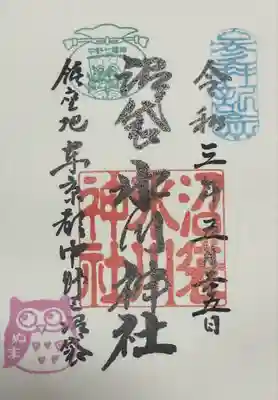 令和三年五月五日
沼袋氷川神社
鎮座地 東京都中野区沼袋
沼袋
氷川
神社
中野七福神
ぬま